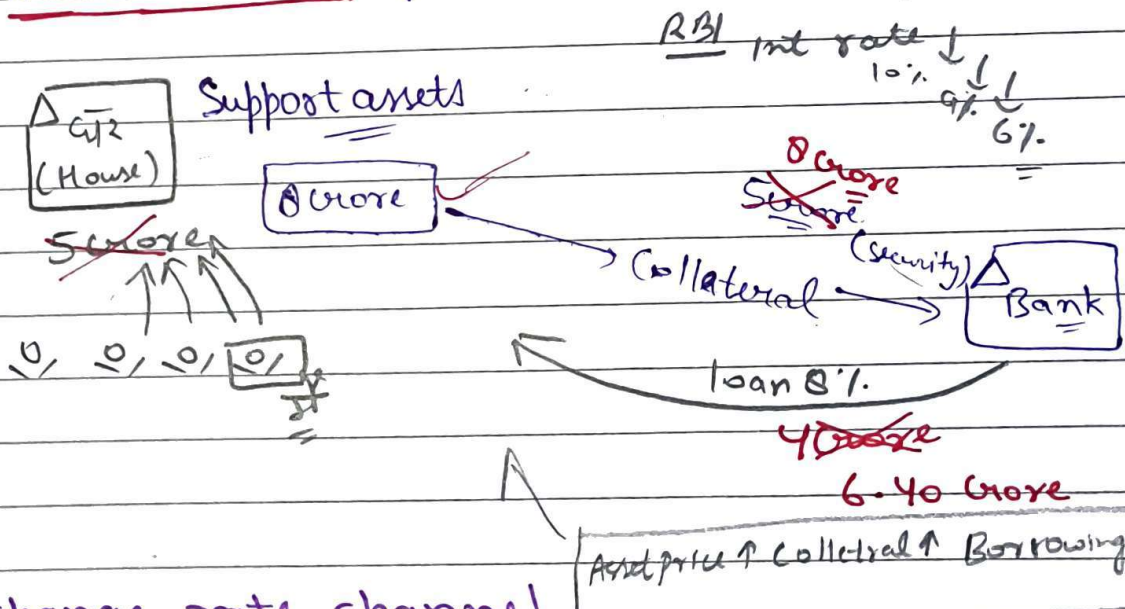 RBI int rate ↓
10% ↓ ↓
9% 6%
Support assets
(House)
8 crore
8 crore
5 crore
5 crore
(security)
Collateral
Bank
loan 8%
4 Crore
6.40 Crore
Asset price ↑ Colletral ↑ Borrowing
rate channel